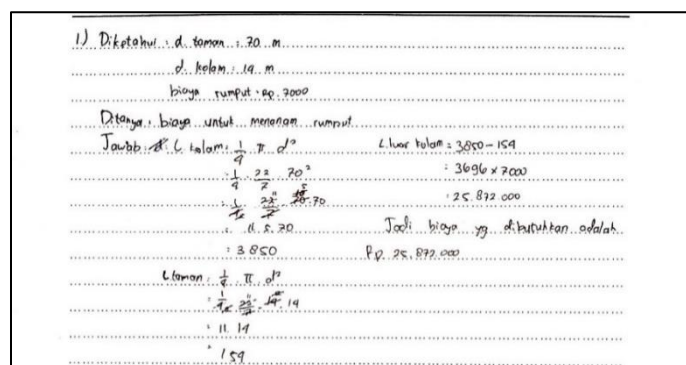 1) Diketahui : d. taman : 70 m
d. kolam : 14 m
biaya rumput : Rp. 7000
Ditanya : biaya untuk menanam rumput
Jawab : L kolam : 1/4 π d²
: 1/4 . 22/7 . 70²
: 1/4 . 22/7 . 70 . 70
: 11 . 5 . 70
: 3850
L taman : 1/4 π d²
: 1/4 . 22/7 . 14 . 14
: 11 . 14
: 154
L. luar kolam = 3850 - 154
: 3696 x 7000
: 25.872.000
Jadi biaya yg dibutuhkan adalah
Rp 25.872.000